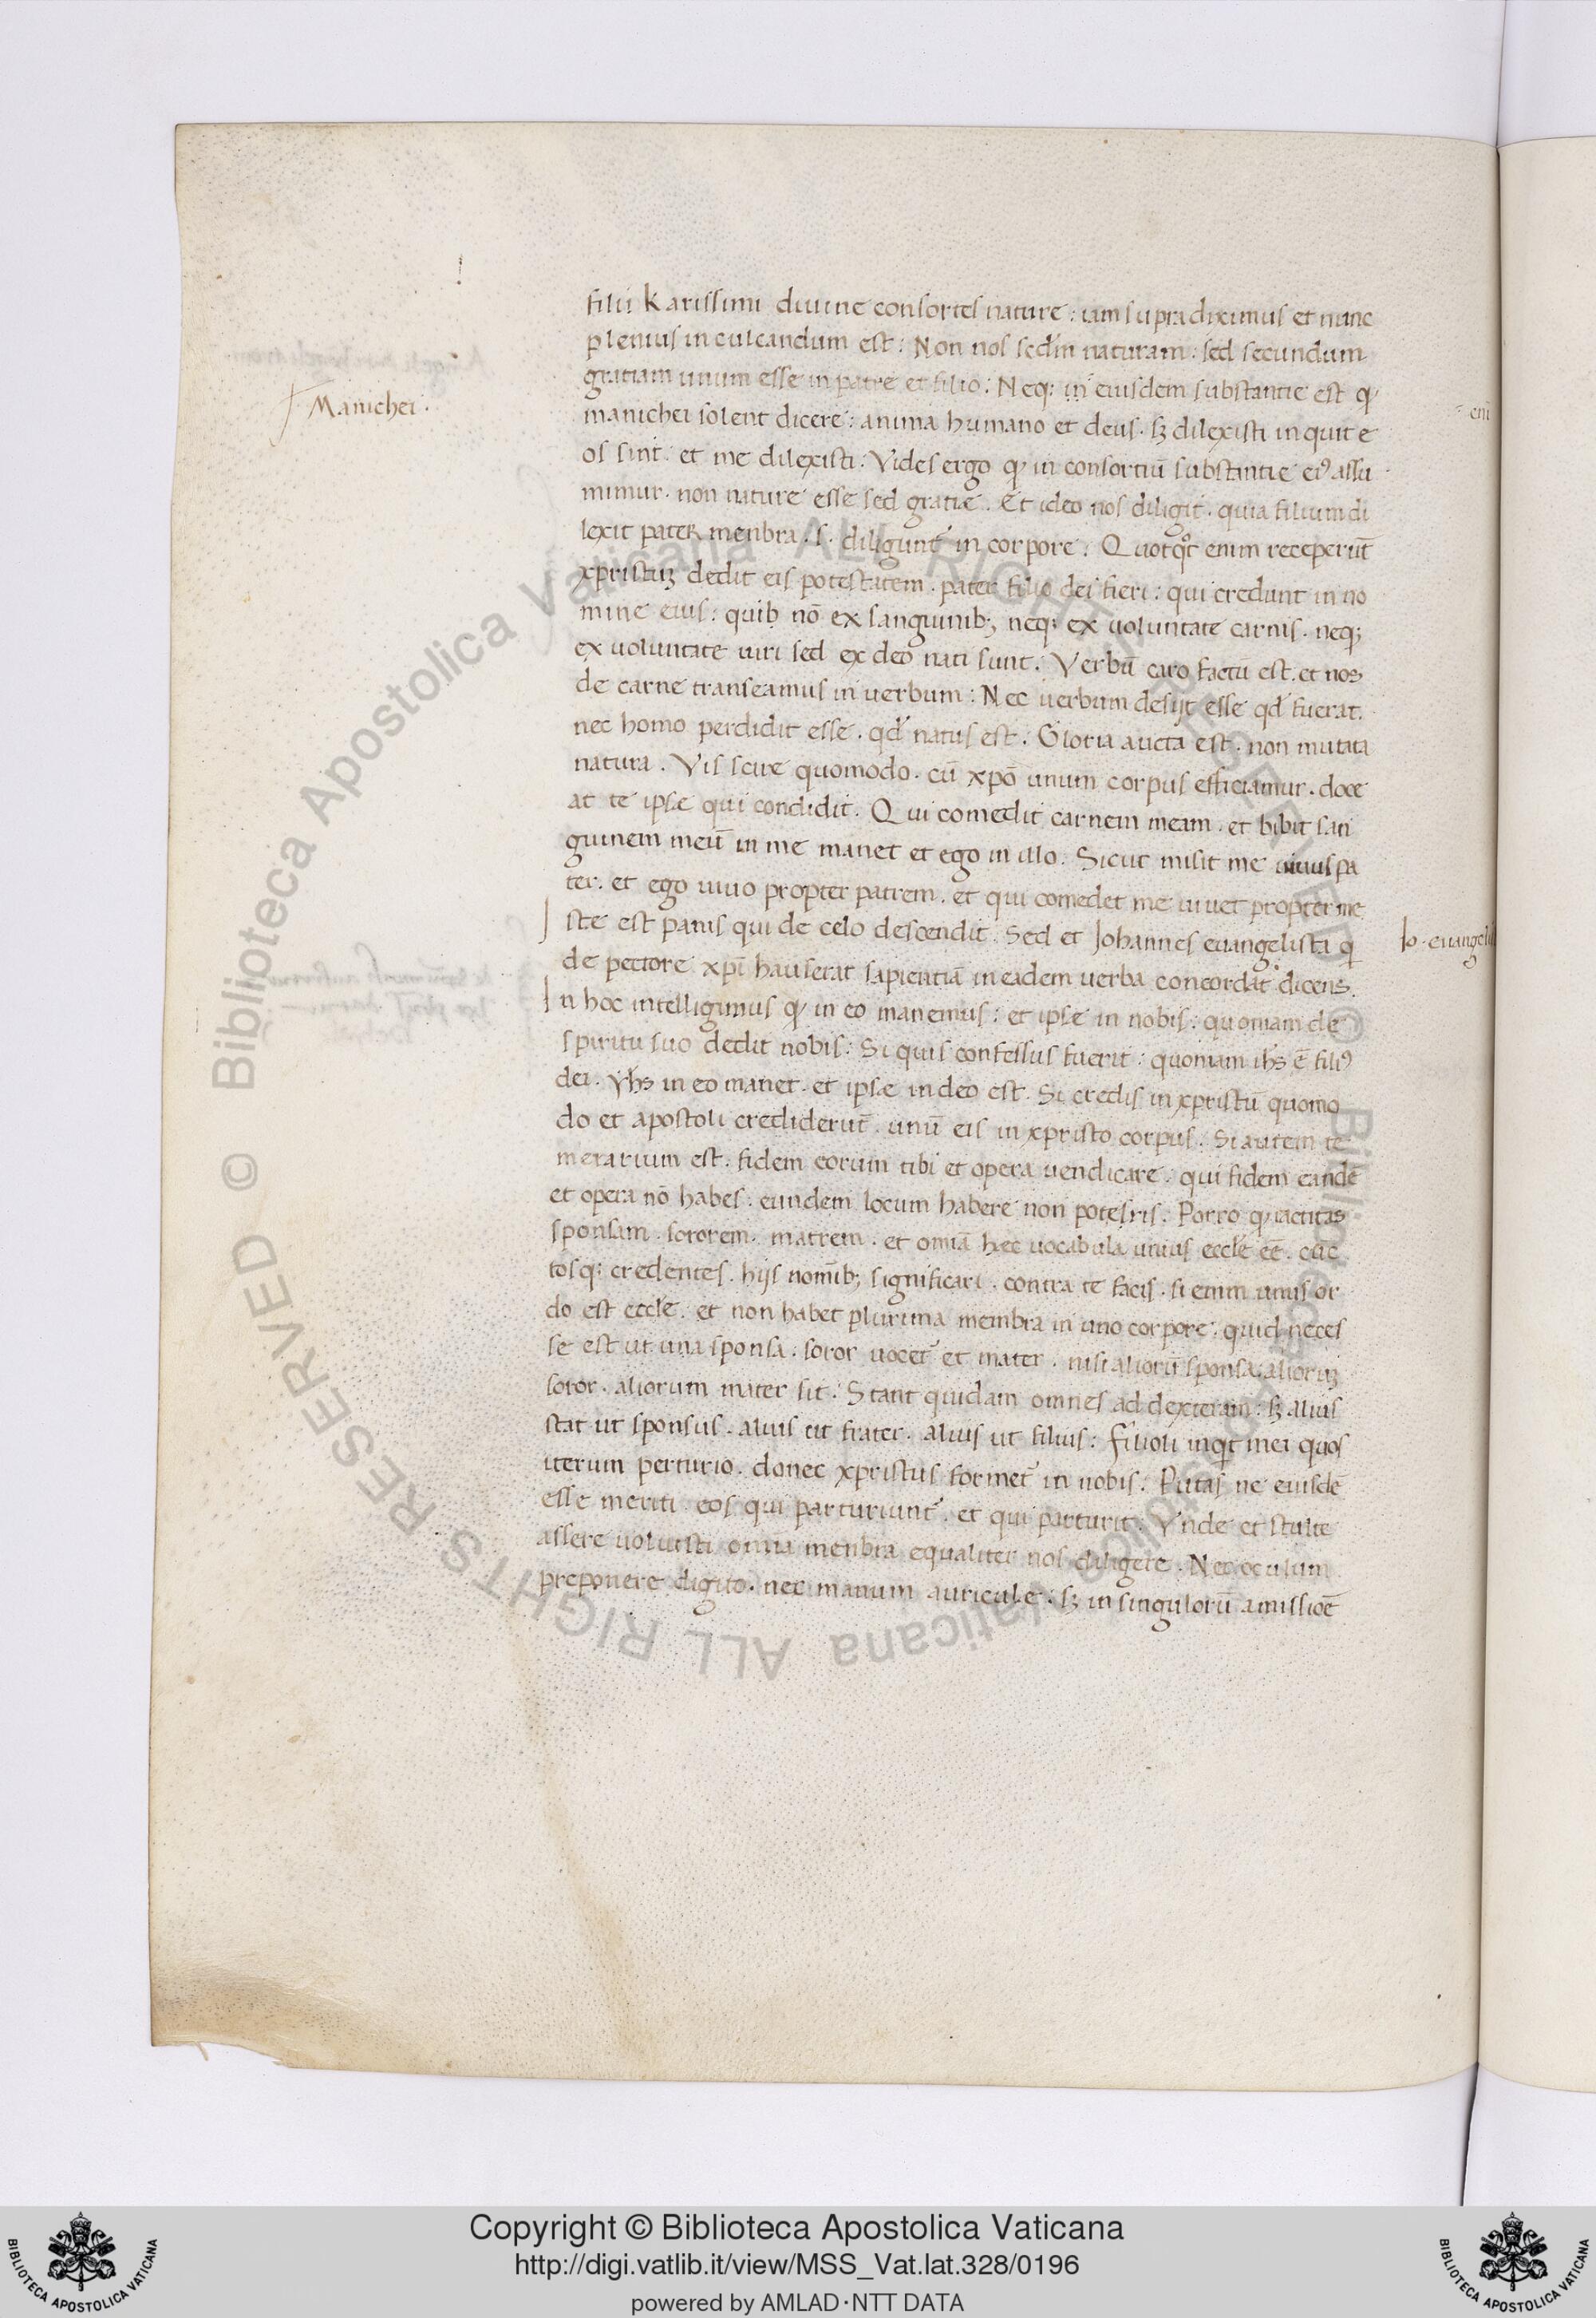 filii Karissimi diuine consortes nature : iam supra diximus et nunc
plenius inculcandum est : Non nos sedm naturam : sed secundum
gratiam unum esse in patre et filio : Neq; in eiusdem substantie est q
Manichei .
manichei solent dicere : anima humano et deus . sz dilexisti inquit e
os sint et me dilexisti : Vides ergo q in consortiū substantie ei9 assu
mimur . non nature esse sed gratiæ . Et ideo nos diligit . quia filium di
lexit pater menbra . s . diligunt in corpore . Quotqot enim receperūt
xpristuz dedit eis potestatem . pater filio dei fieri : qui credunt in no
mine eius : quib nō ex sanguinib; neq; ex uoluntate carnis . neq;
ex uoluntate uiri sed ex deo nati sunt . Verbū caro factū est . et nos
de carne transeamus in uerbum : Nec uerbum desijt esse qd fuerat .
nec homo perdidit esse . qd natus est . Gloria aucta est . non mutata
natura . Vis scire quomodo . cū xpō unum corpus efficiamur . doce
at te ipse qui condidit . Qui comedit carnem meam . et bibit san
guinem meū in me manet et ego in illo . Sicut misit me uiuus pa
ter . et ego uiuo propter patrem . et qui comedet me uiuet propter me
Iste est panis qui de celo descendit . Sed et Johannes euangelista q
Io . euangeli
de pectore xpī hauserat sapientiā in eadem uerba concordat dicens .
In hoc intelligimus q in eo manemus : et ipse in nobis : quoniam de
spiritu suo dedit nobis : Si quis confessus fuerit : quoniam ihs ē fili9
dei . yhs in eo manet . et ipse in deo est . Si credis in xpristū quomo
do et apostoli crediderūt . unū eis in xpristo corpus . Si autem te
merarium est . fidem eorum tibi et opera uendicare . qui fidem eandē
et opera nō habes . eundem locum habere non poteris . Porro q iactitas
sponsam . sororem . matrem . et omīa hec uocabula unius eccle eē . cūc
tosq; credentes . hijs nomīb; significari . contra te facis . si enim unus or
do est eccle . et non habet plurima membra in uno corpore . quid neces
se est ut una sponsa . soror uocet et mater . nisi aliorū sponsa . alioruz
soror . aliorum mater sit . Stant quidam omnes ad dexteram : sz alius
stat ut sponsus . alius ut frater . alius ut filius : Filioli inqt mei quos
iterum perturio . donec xpristus formet in nobis . Putas ne eiusdē
esse meriti eos qui parturiunt . et qui parturit . Vnde et stulte
assere uoluisti omnia menbra equaliter nos diligere . Nec oculum
preponere digito . nec manum auricule . sz in singulorū amissiōe
© Biblioteca Apostolica Vaticana ALL RIGHTS RESERVED
Copyright © Biblioteca Apostolica Vaticana
http://digi.vatlib.it/view/MSS_Vat.lat.328/0196
powered by AMLAD·NTT DATA
BIBLIOTECA APOSTOLICA VATICANA
BIBLIOTECA APOSTOLICA VATICANA